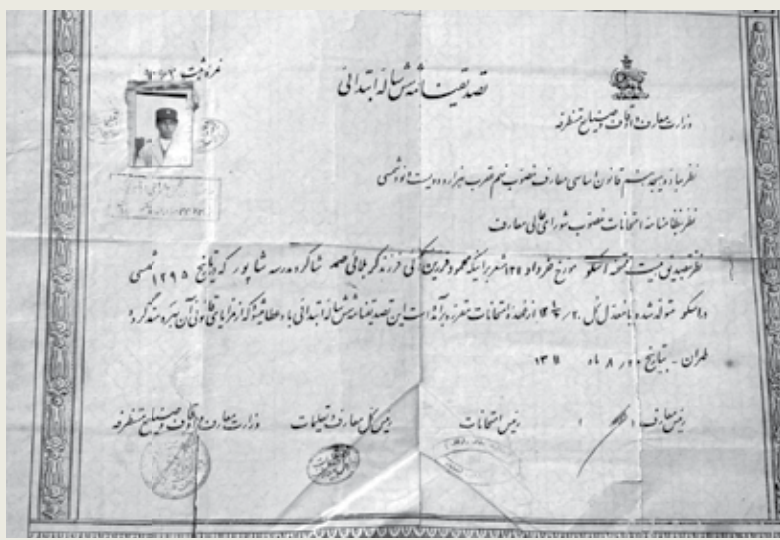 نمره ثبت
تصدیقنامه شش ساله ابتدائی
وزارت معارف و اوقاف و صنایع مستظرفه
نظر بماده هیجدهم قانون اساسی معارف مصوب نهم عقرب هزار و دویست و نود شمسی
نظر بنظامنامه امتحانات مصوب شورای عالی معارف
نظر بتصدیق هیئت ممتحنه اسکو مورخ خرداد مشعر براینکه محمود فرزند کربلائی صمد شاگرد مدرسه شاپور که در تاریخ ۱۲۹۵ شمسی
در اسکو متولد شده با معدل کل از عهده امتحانات مقرره برآمده است این تصدیقنامه شش ساله ابتدائی باو اعطا میشود که از مزایای قانونی آن بهره مند گردد
طهران - بتاریخ ۲۰ ر ۸ ماه ۱۳۱۱
رئیس معارف
رئیس امتحانات
رئیس کل معارف و تعلیمات
وزارت معارف و اوقاف و صنایع مستظرفه